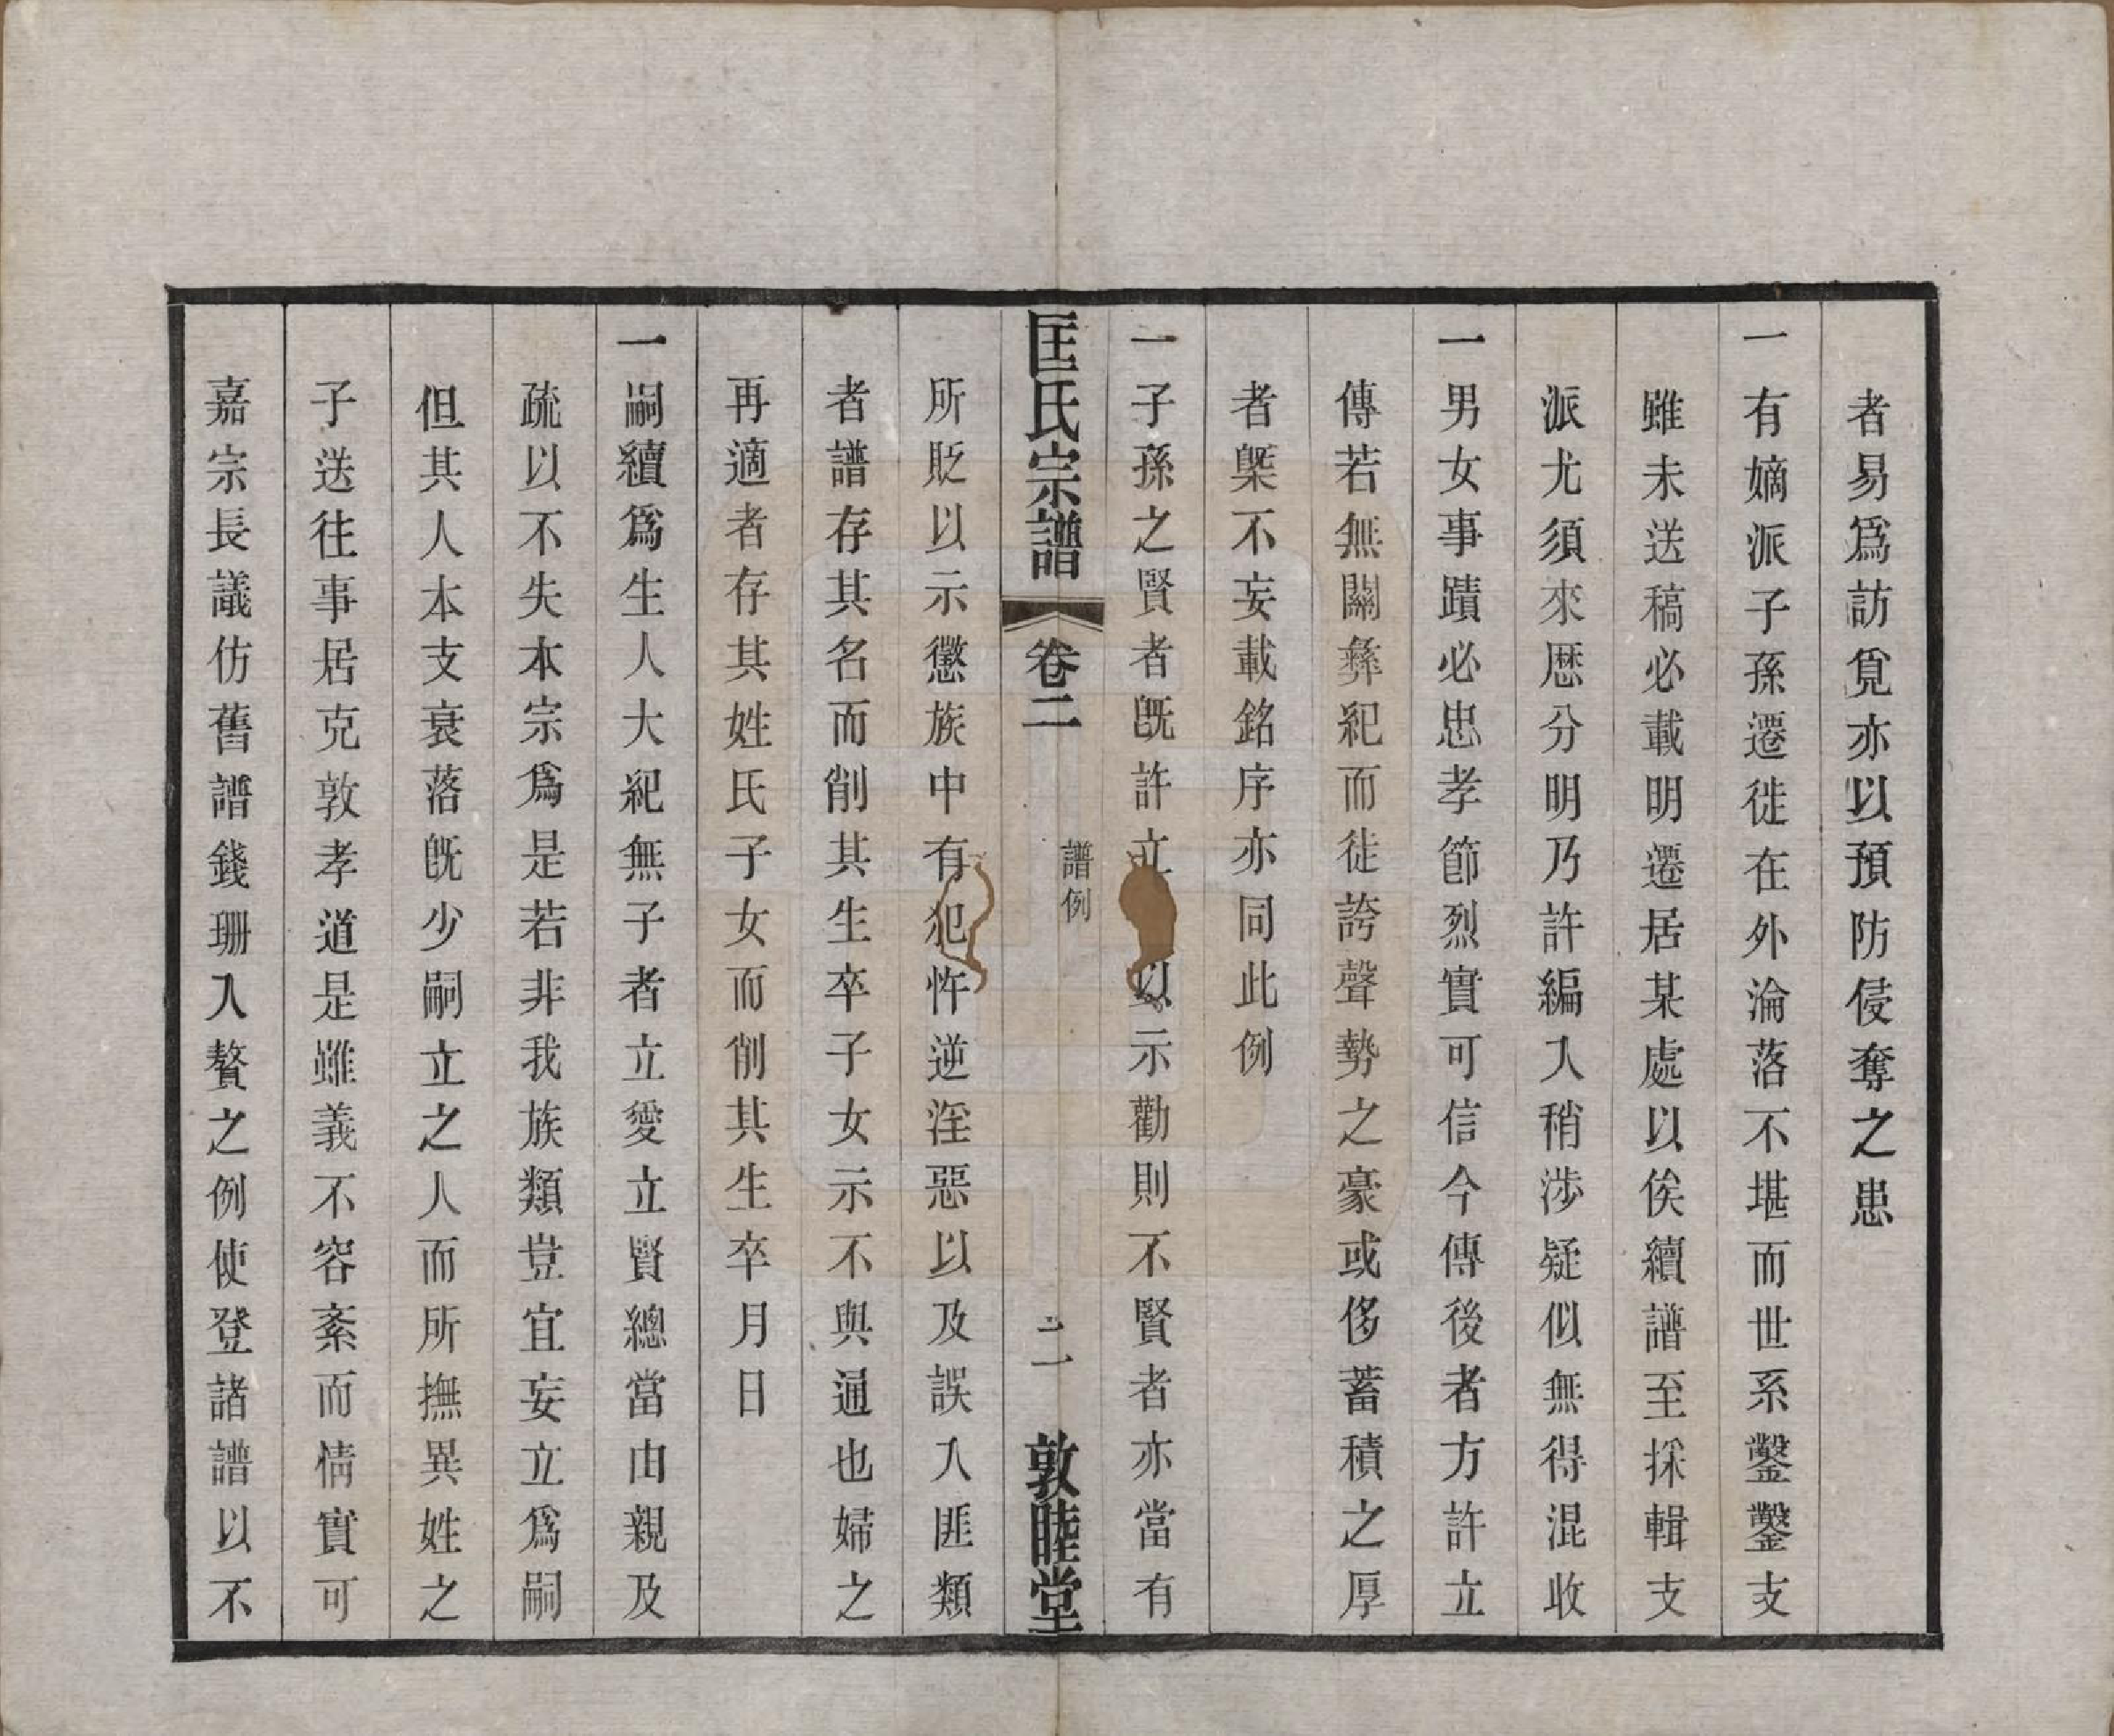 者易爲訪覓亦以預防侵奪之患
一有嫡派子孫遷徙在外淪落不堪而世系鑿鑿支
雖未送稿必載明遷居某處以俟續譜至採輯支
派尤須來歷分明乃許編入稍涉疑似無得混收
一男女事蹟必忠孝節烈實可信今傳後者方許立
傳若無關彝紀而徒誇聲勢之豪或侈蓄積之厚
者槩不妄載銘序亦同此例
一子孫之賢者既許立 以示勸則不賢者亦當有
匡氏宗譜 卷二 譜例 二 敦睦堂
所貶以示懲族中有犯忤逆淫惡以及誤入匪類
者譜存其名而削其生卒子女示不與通也婦之
再適者存其姓氏子女而削其生卒月日
一嗣續爲生人大紀無子者立愛立賢總當由親及
疏以不失本宗爲是若非我族類豈宜妄立爲嗣
但其人本支衰落既少嗣立之人而所撫異姓之
子送往事居克敦孝道是雖義不容紊而情實可
嘉宗長議仿舊譜錢珊入贅之例使登諸譜以不